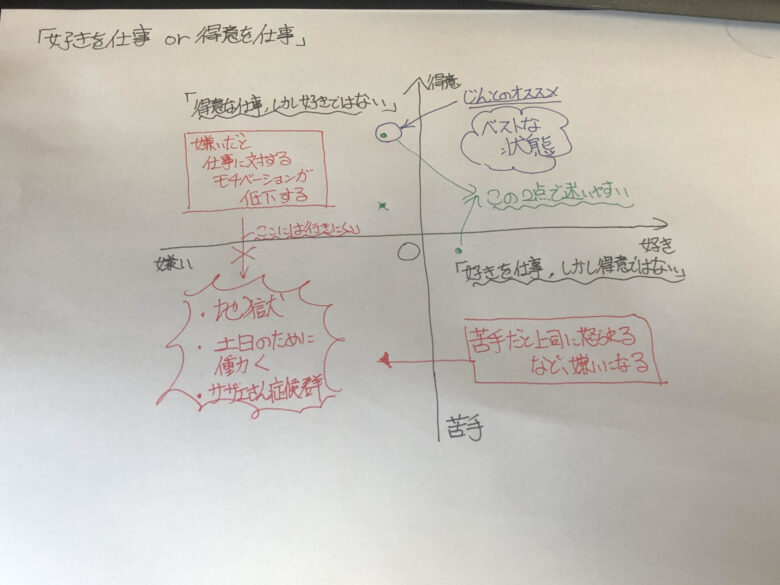 「好きを仕事 or 得意を仕事」
得意
「得意な仕事,しかし好きではない」
じんとのオススメ
ベストな
状態
嫌いだと
仕事に対する
モチベーションが
低下する
この2点で迷いやすい
ここには行きにくい
嫌い
好き
「好きを仕事,しかし得意ではない」
・地獄
・土日のために
働く
・サザエさん症候群
苦手だと上司に怒られる
など、嫌いになる
苦手